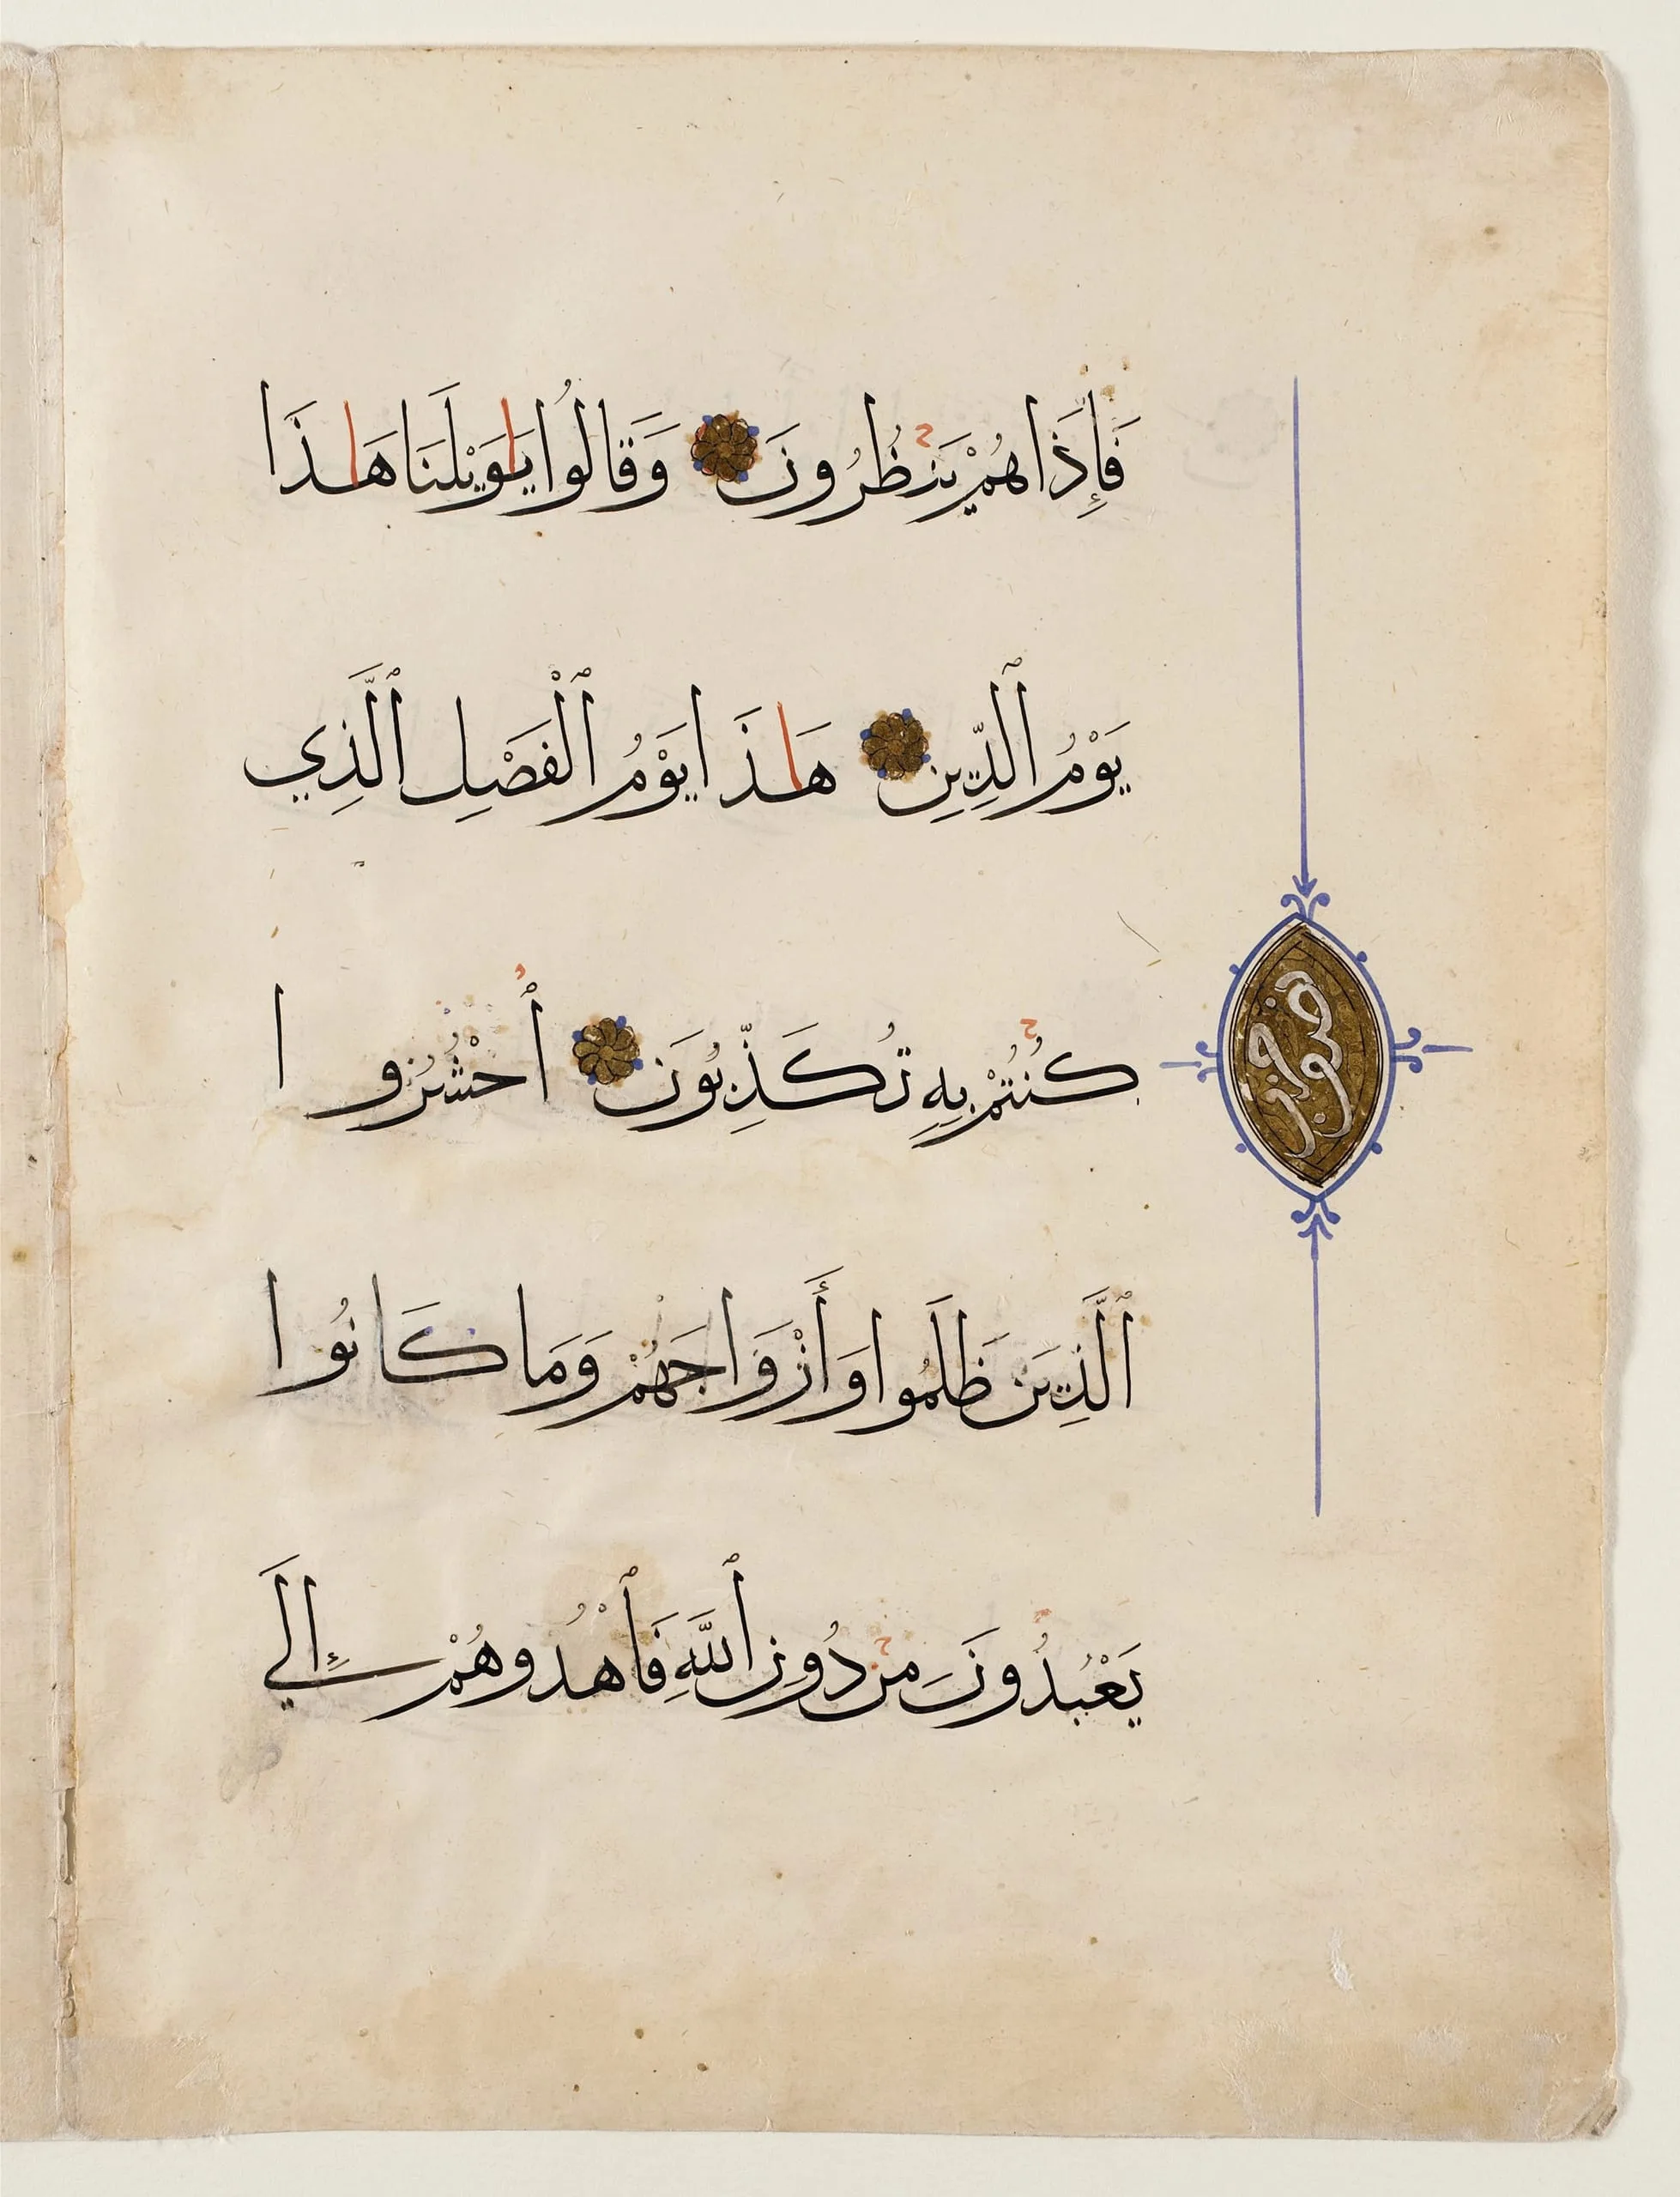 فَإِذَا هُمْ يَنظُرُونَ وَقَالُوا يَاوَيْلَنَا هَاذَا
يَوْمُ ٱلدِّينِ هَاذَا يَوْمُ ٱلْفَصْلِ ٱلَّذِي
كُنتُمْ بِهِ تُكَذِّبُونَ ٱحْشُرُوا
ٱلَّذِينَ ظَلَمُوا وَأَزْوَاجَهُمْ وَمَا كَانُوا
يَعْبُدُونَ مِن دُونِ ٱللَّهِ فَٱهْدُوهُمْ إِلَي